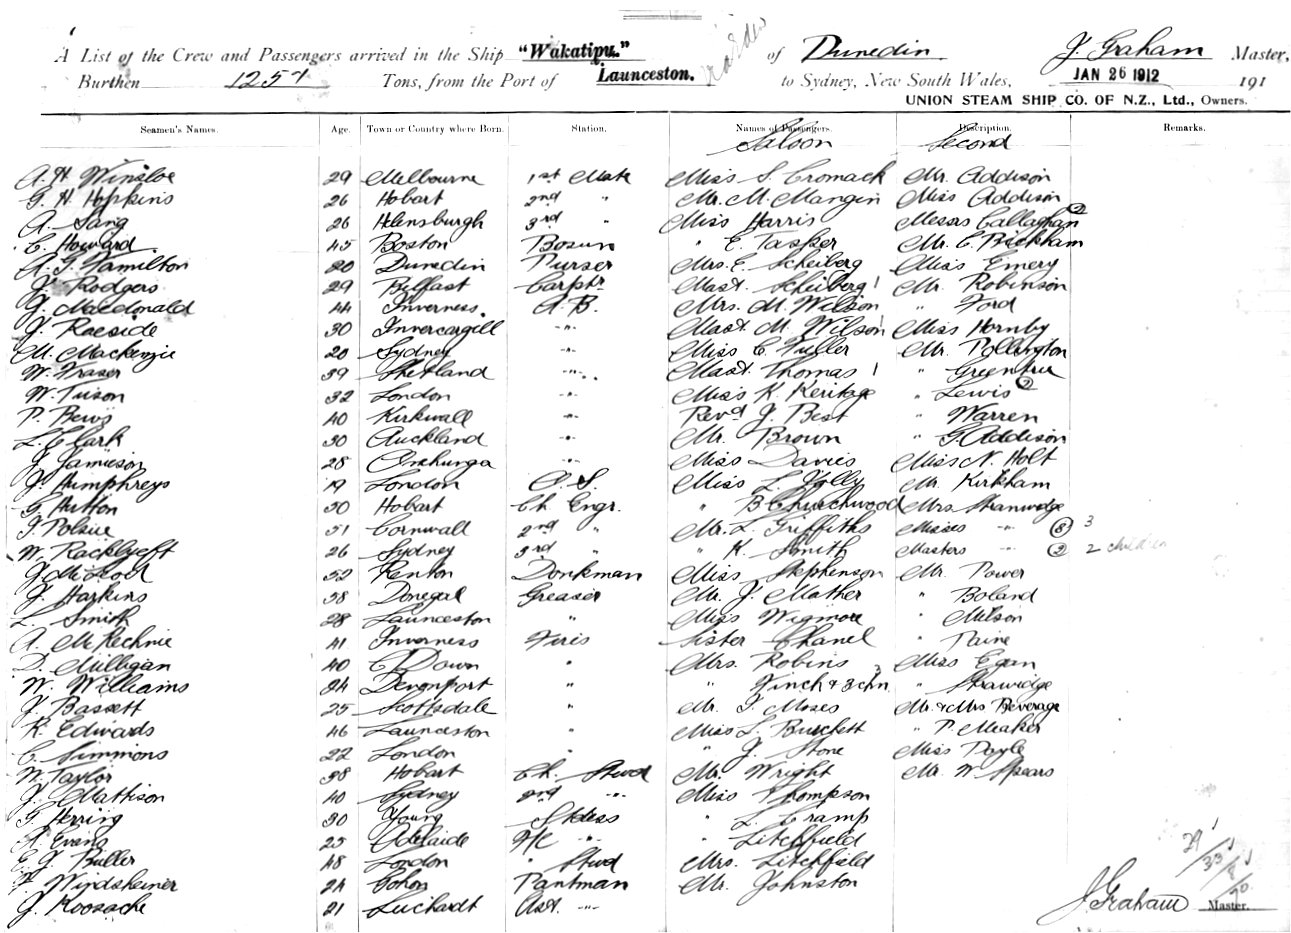 A List of the Crew and Passengers arrived in the Ship "Wakatipu." of Dunedin J. Graham Master,
Burthen 1257 Tons, from the Port of Launceston. to Sydney, New South Wales, JAN 26 1912 191
UNION STEAM SHIP CO. OF N.Z., Ltd., Owners.
Seamen's Names. Age. Town or Country where Born. Station. Names of Passengers. Description. Remarks.
Saloon Second
A. H. Winsloe 29 Melbourne 1st Mate Miss S. Cromack Mr. Addison
G. H. Hopkins 26 Hobart 2nd " Mr. M. Mangin Miss Addison
A. Sang 26 Helensburgh 3rd " Miss Harris Messrs Callaghan 2
C. Howard 45 Boston Bosun " E. Tasker Mr. C. Bickham
A. G. Hamilton 20 Dunedin Purser Mrs. E. Scheiberg Miss Emery
J. Rodgers 29 Belfast Carptr Mast. Scheiberg 1 Mr. Robinson
J. Macdonald 44 Inverness. A.B. Mrs. M. Wilson " Ford
J. Raeside 30 Invercargill -"- Mast. M. Wilson 1 Miss Hornby
M. Mackenzie 20 Sydney -"- Miss C. Fuller Mr. Pollington
W. Fraser 39 Shetland -"- Mast. Thomas 1 "
W. Tuson 32 London -"- Miss K. Keritage " Lewis 2
P. Bews 40 Kirkwall -"- Revd J. Best " Warren
L. Clark 30 Auckland -"- Mr. Brown " G. Addison
J. Jamieson 28 Onehunga -"- Miss Davies Miss N. Holt
J. Humphreys 19 London O.S. Miss L. Jolly Mr. Kirkham
G. Hutton 50 Hobart Ch. Engr. " B. Churchwood Mrs. Stanwidge
J. Polsue 51 Cornwall 2nd " Mr. L. Griffiths Misses -"- 3
W. Racklyeft 26 Sydney 3rd " " K. Smith Masters -"- 2 2 children
J. McLeod 52 Renton Donkman Miss Stephenson Mr. Power
J. Harkins 38 Donegal Greaser Mr. J. Mather " Boland
L. Smith 28 Launceston " Miss Wigmore " Melson
A. McKechnie 41 Inverness Fires Sister Chanel " Paine
D. Milligan 40 C. Down " Mrs. Robins Miss Egan
W. Williams 24 Devonport " " Finch & 3 chn. 3 " Strawidge
J. Bassett 25 Scottsdale " Mr. J. Moses Mr. & Mrs Beverage
R. Edwards 46 Launceston " Miss L. Burchett " P. Meaker
C. Simmons 22 London " " J. Stone Miss Doyle
W. Taylor 38 Hobart Ch. Stwd Mr. Wright Mr. W. Spears
J. Mattison 40 Sydney 2nd -"- Miss Thompson
G. Herring 30 Young Stdess " L. Cramp
A. Evans 25 Adelaide F/C -"- " Litchfield
E. J. Buller 48 London " Stwd Mrs. Litchfield
F. Windsheimer 24 Pantman Mr. Johnston
J. Koosache 21 Leichardt Asst. -"-
J. Graham Master.